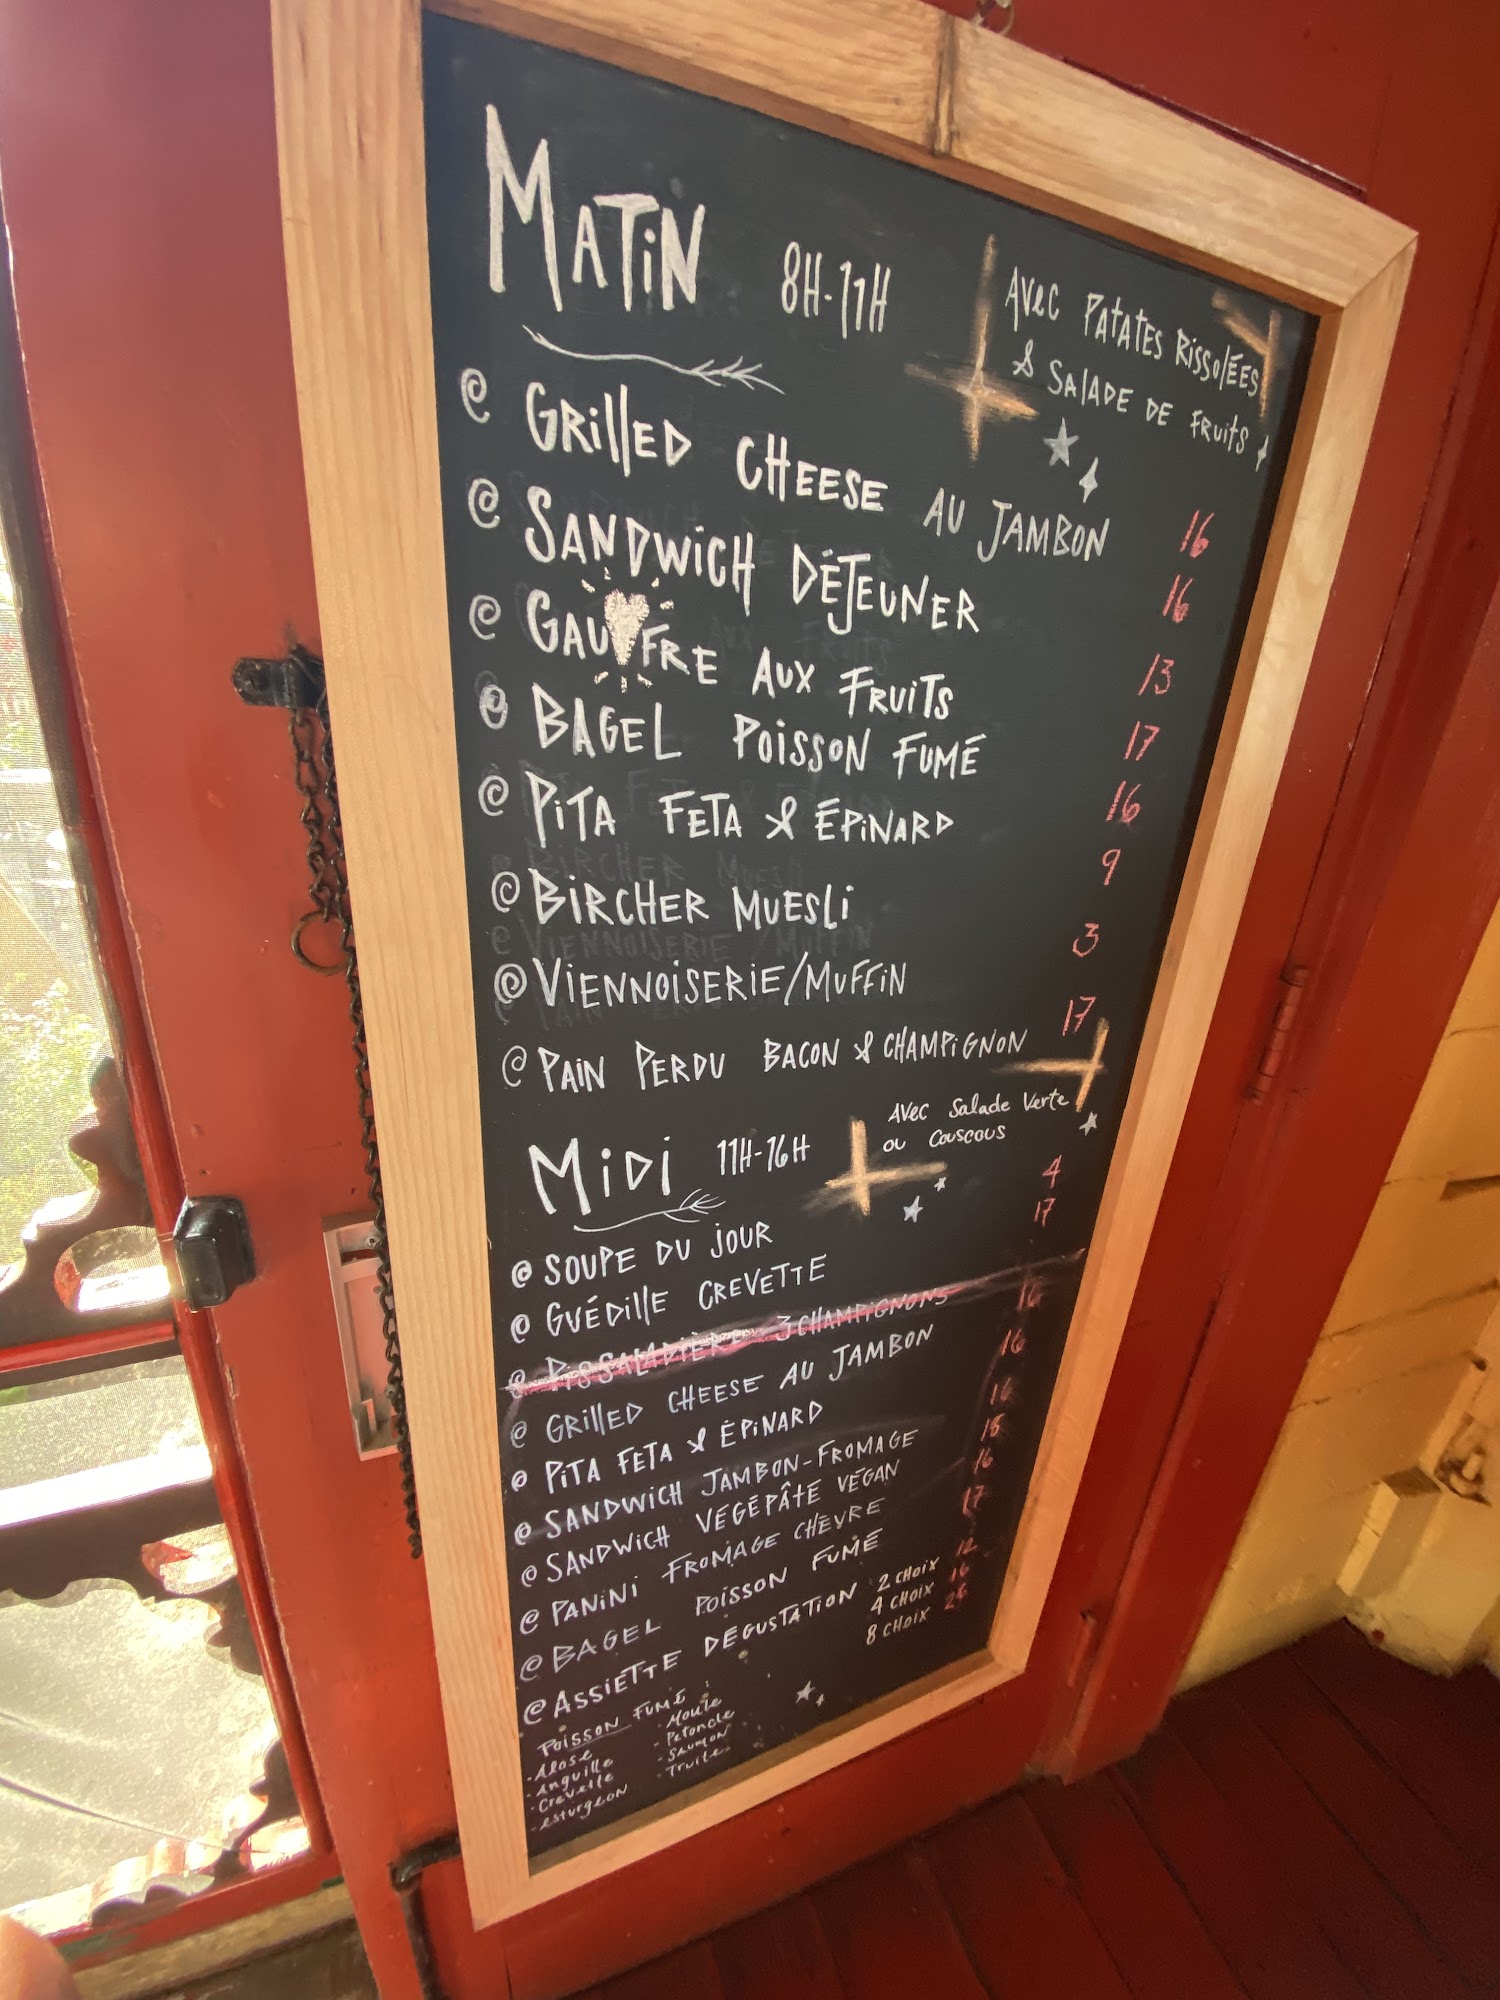 MATiN 8H-11H
AVEC PATATES RISSOLÉES
& SALADE DE FRUITS
@ GRILLED CHEESE AU JAMBON 16
@ SANDWICH DÉJEUNER 16
@ GAUFFRE AUX FRUITS 13
@ BAGEL POISSON FUMÉ 17
@ PITA FETA & ÉPINARD 16
@ BIRCHER MUESLI 9
@ VIENNOISERIE/MUFFIN 3
@ PAIN PERDU BACON & CHAMPIGNON 17
MIDI 11H-16H
AVEC Salade Verte
ou Couscous
@ SOUPE DU JOUR 4
@ GUÉDILLE CREVETTE 17
@ PISSALADIÈRE 3 CHAMPIGNONS 16
@ GRILLED CHEESE AU JAMBON 16
@ PITA FETA & ÉPINARD 16
@ SANDWICH JAMBON-FROMAGE 18
@ SANDWICH VÉGÉPÂTÉ VÉGAN 16
@ PANINI FROMAGE CHÈVRE 17
@ BAGEL POISSON FUMÉ
@ ASSIETTE DÉGUSTATION 2 CHOIX 12
4 CHOIX 16
8 CHOIX
POISSON FUMÉ
- Alose
- Anguille
- Crevette
- esturgeon
- Moule
- Pétoncle
- Saumon
- Truite